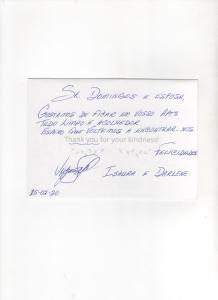 Sr. Domingos e esposa,
Gostamos de ficar em vosso apts
tudo limpo e acolhedor
espero que voltemos a encontrar-nos
Thank you for your kindness!
Felicidades
Isaura e Darlene
15-02-20